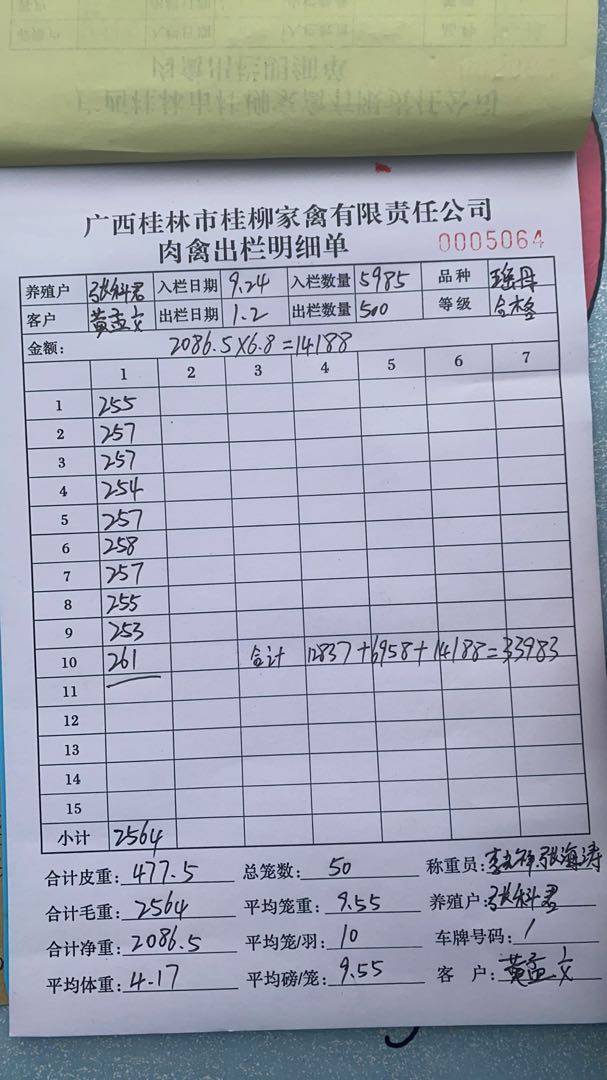 广西桂林市桂柳家禽有限责任公司
肉禽出栏明细单
0005064
养殖户 张科君 入栏日期 9.24 入栏数量 5985 品种 瑶丹
客户 黄孟文 出栏日期 1.2 出栏数量 500 等级 合格
金额: 2086.5×6.8=14188
1 2 3 4 5 6 7
1 255
2 257
3 257
4 254
5 257
6 258
7 257
8 255
9 253
10 261 合计 12837+6958+14188=33983
11
12
13
14
15
小计 2564
合计皮重: 477.5 总笼数: 50 称重员: 张海涛
合计毛重: 2564 平均笼重: 9.55 养殖户: 张科君
合计净重: 2086.5 平均笼/羽: 10 车牌号码: /
平均体重: 4.17 平均磅/笼: 9.55 客 户: 黄孟文